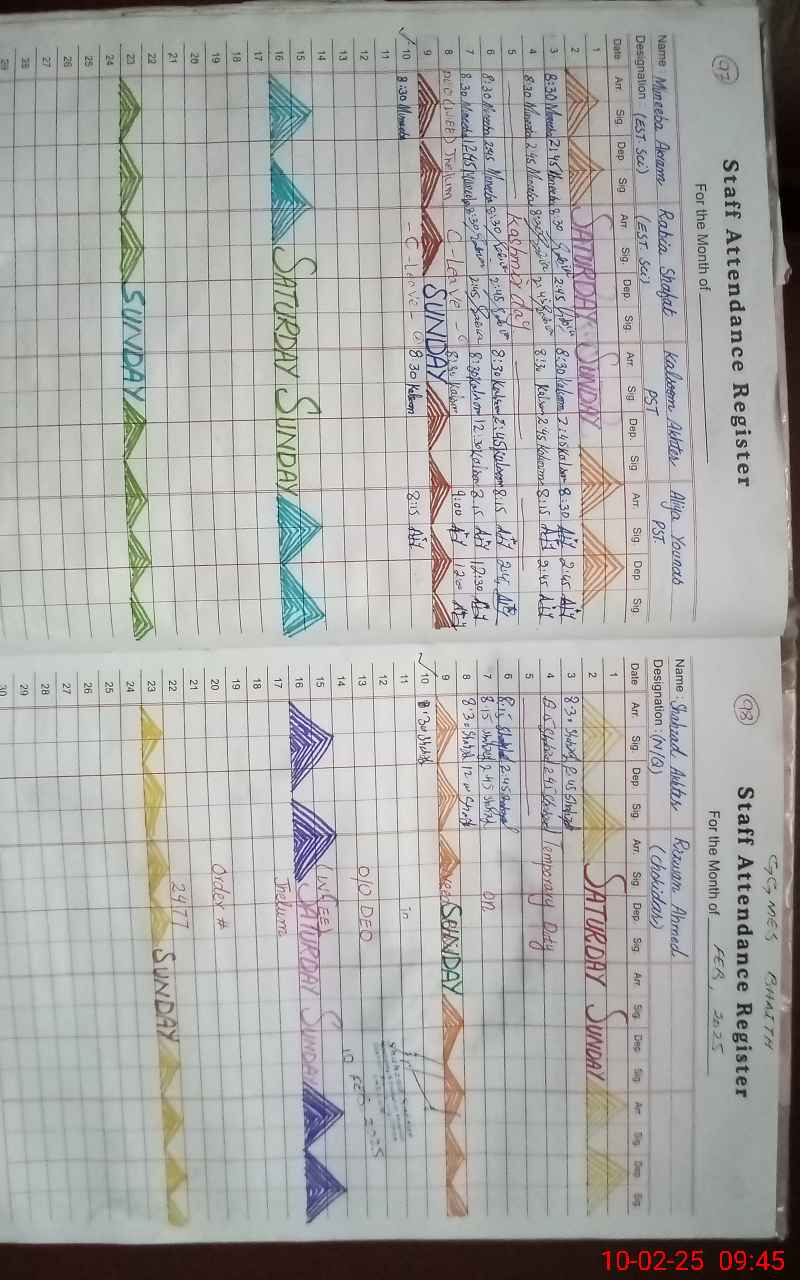 97
Staff Attendance Register
For the Month of
Name: Muneeba Akram Rabia Shafat Kalsoom Akhter Aliya Younab
Designation: (EST. Sci) (EST. Sci) PST PST
Date Arr. Sig. Dep. Sig. Arr. Sig. Dep. Sig. Arr. Sig. Dep. Sig. Arr. Sig. Dep. Sig.
1 SATURDAY SUNDAY
2
3 8:30 Muneeba 2:45 Muneeba 8:30 2:45 8:30 Kalsoom 2:45 Kalsoom 8:30 2:45
4 8:30 Muneeba 2:45 Muneeba 8:30 2:45 8:30 Kalsoom 2:45 Kalsoom 8:15 2:45
5 Kashmir day
6 8:30 Muneeba 2:45 Muneeba 8:30 Rabia 2:45 8:30 Kalsoom 2:45 Kalsoom 8:15 2:45
7 8:30 Muneeba 2:45 Muneeba 8:30 2:45 Rabia 8:30 Kalsoom 12:30 Kalsoom 8:15 12:30
8 (WEE) Jhelum C-Leave 8:30 Kalsoom 9:00 12:00
9 SUNDAY
10 8:30 Muneeba - C - Leave 8:30 Kalsoom 8:15
11
12
13
14
15 SATURDAY SUNDAY
16
17
18
19
20
21
22
23 SUNDAY
24
25
26
27
28
29
GGMES BHAITH
98
Staff Attendance Register
For the Month of FEB, 2025
Name: Shahzad Akhter Rizwan Ahmed
Designation: (N/Q) (Chokidar)
Date Arr. Sig. Dep. Sig. Arr. Sig. Dep. Sig. Arr. Sig. Dep. Sig. Arr. Sig. Dep. Sig.
1 SATURDAY SUNDAY
2
3 8:30 Shahzad 2:45 Shahzad
4 8:15 Shahzad 2:45 Shahzad Temporary Duty
5
6 8:15 Shahzad 2:45 Shahzad
7 8:15 Shahzad 2:45 Shahzad on
8 8:30 Shahzad 12:00
9 SUNDAY
10 8:30 Shahzad
11 in
12
13 O/O DEO
14 10 FEB 2025
15 (WEE) SATURDAY SUNDAY
16
17 Jhelum
18
19
20 Order #
21
22 2477
23 SUNDAY
24
25
26
27
28
29
30
10-02-25 09:45